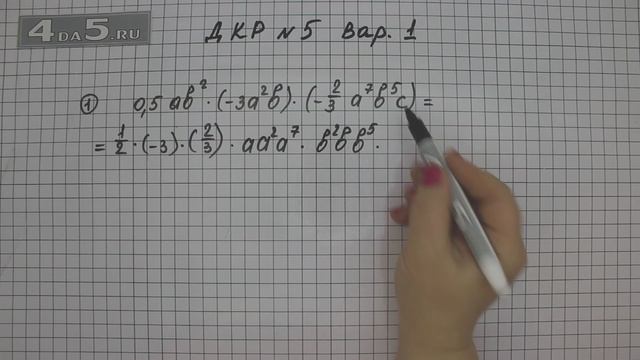 4DA5.RU
ДКР №5 Вар. 1
① 0,5 ab² · (-3a²b) · (-2/3 a⁷b⁵c) =
= 1/2 · (-3) · (2/3) · aa²a⁷ · b²bb⁵ ·